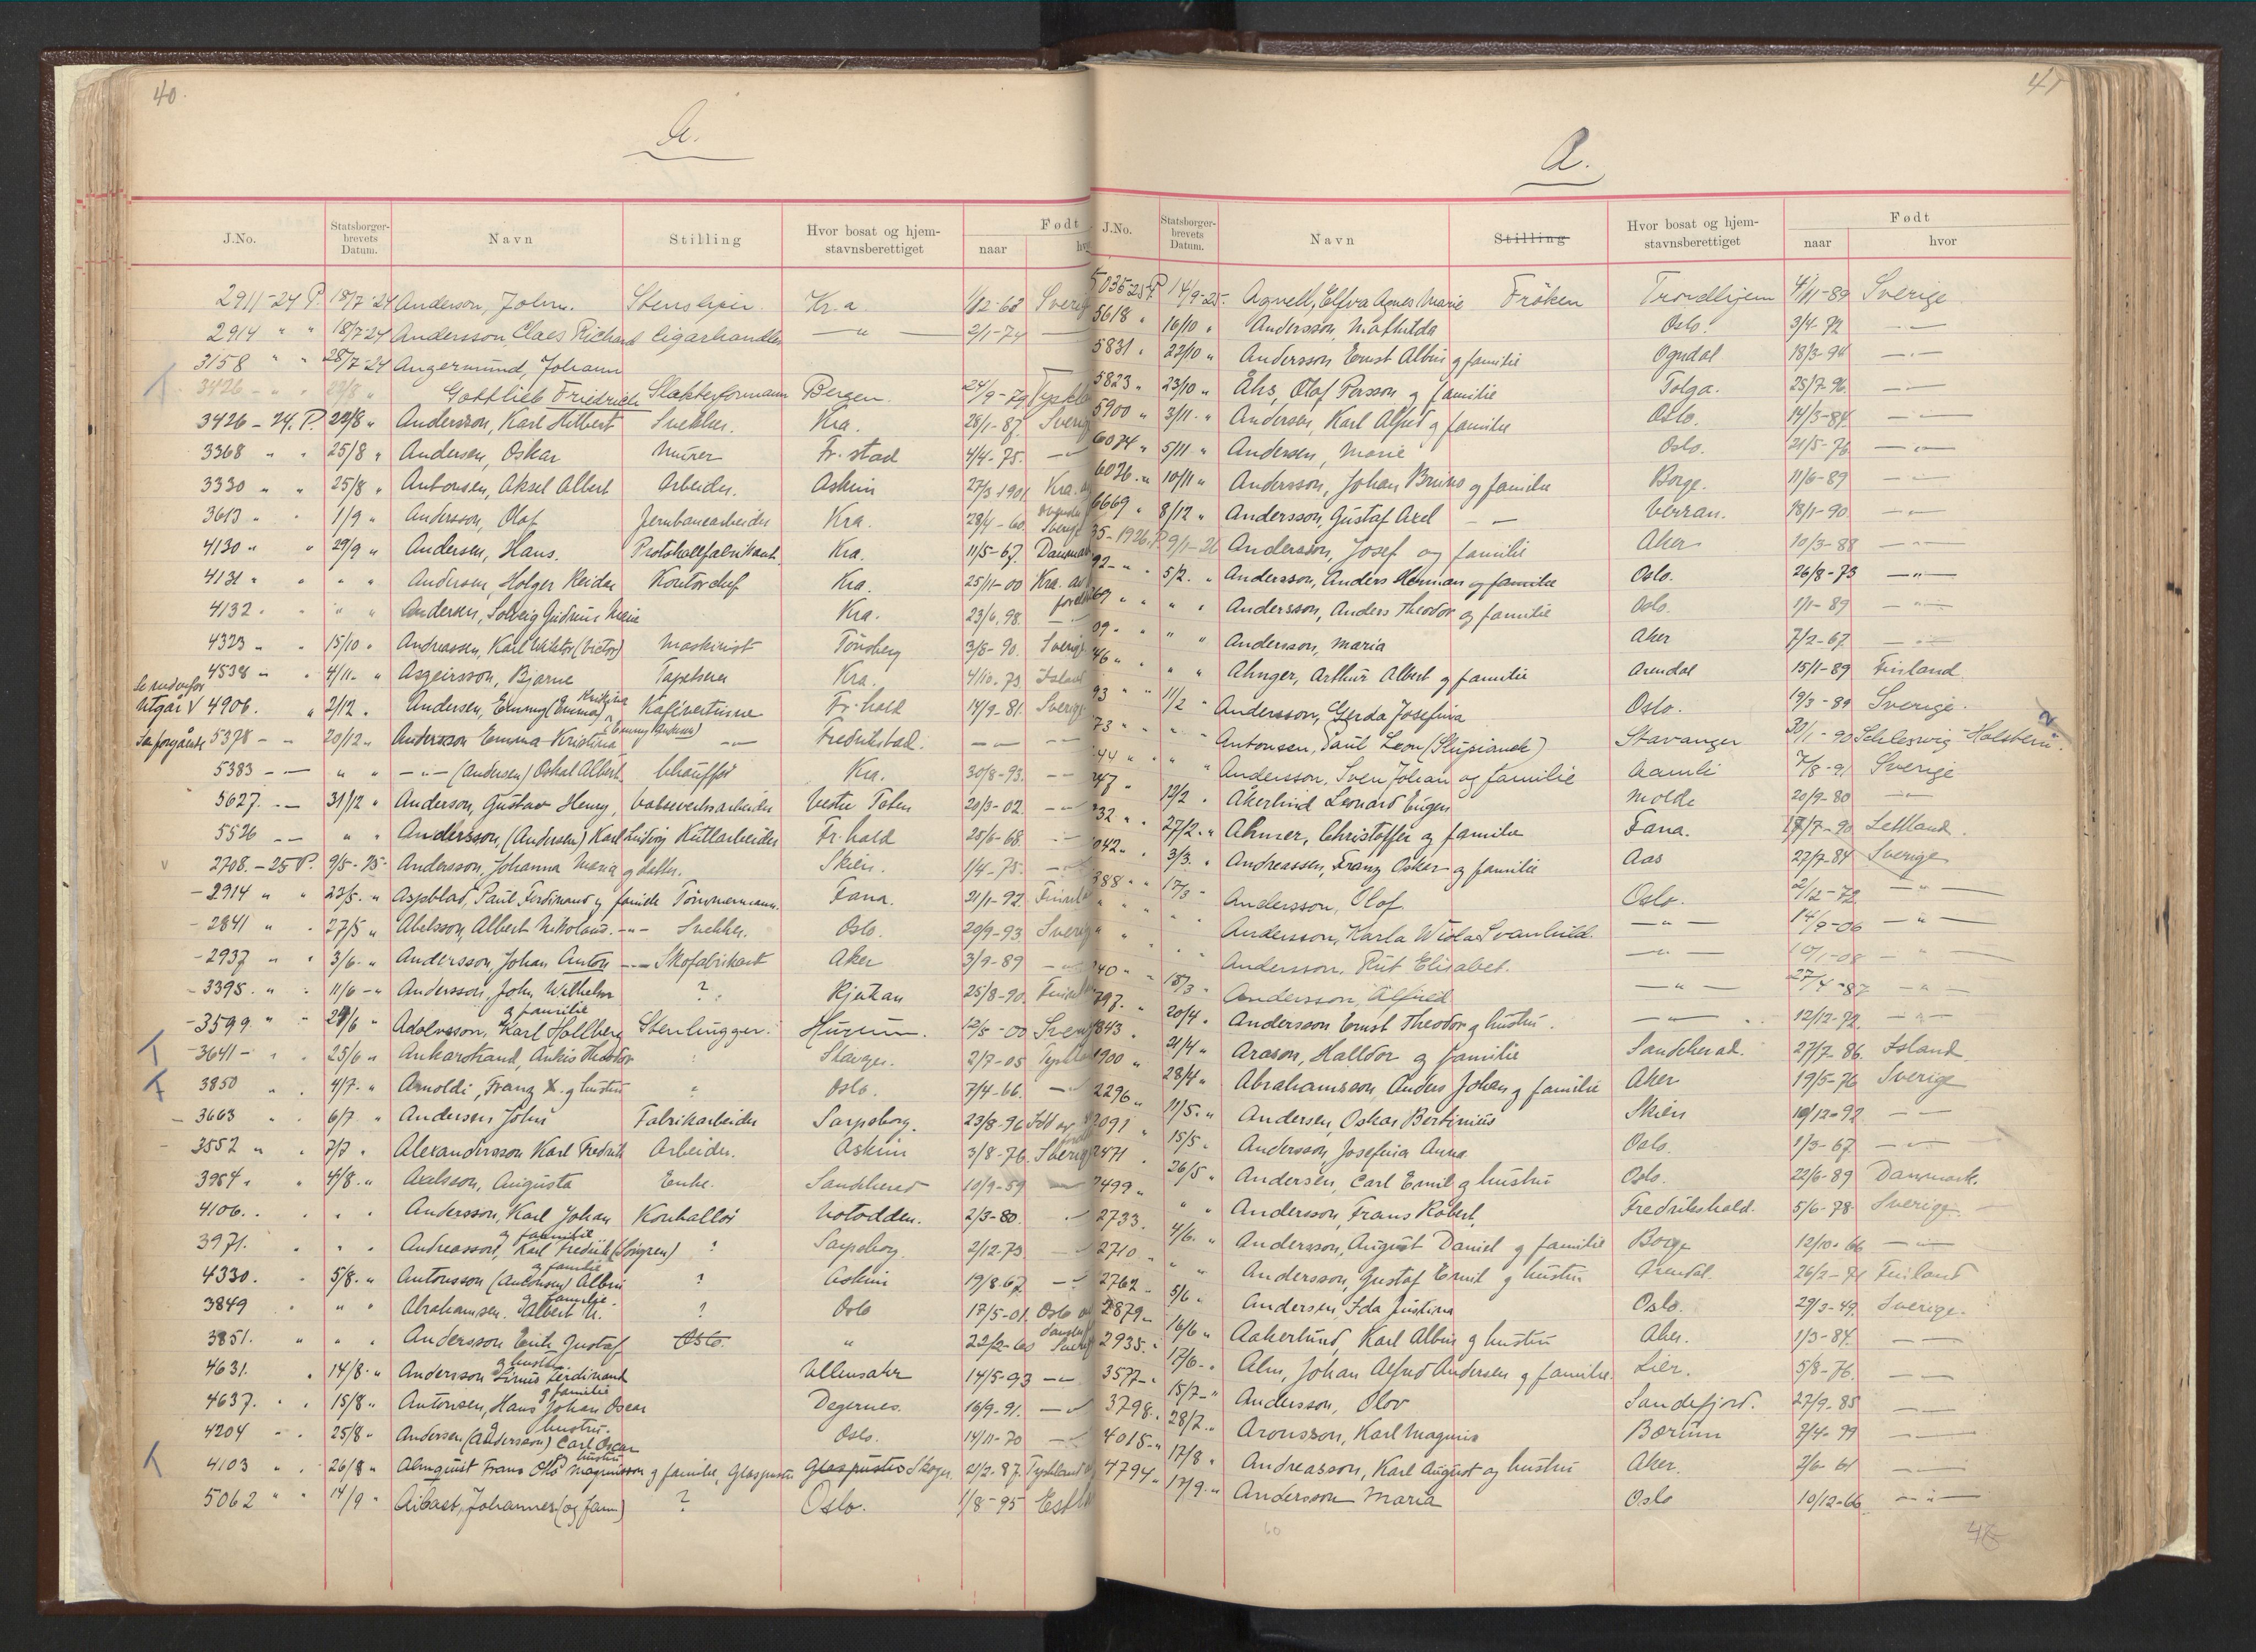 40.
A.
J.No. Statsborger-brevets Datum. Navn Stilling Hvor bosat og hjem-stavnsberettiget Født naar
2911-24 P. 18/7-24 Anderson, John. Kr.a 1/12-68 Sverig
2914 " " 18/7-24 Andersson, Claes Richard Cigarhandler — " — 2/1-74 —
3158 " " 28/7-24 Angermund, Johann
3426 - " " 22/8 " Gottlieb Friedrich Slakterformann Bergen. 24/9-79 Tyskla
3426-24. P. 22/8 " Andersson, Karl Hilbert Snekker. Kra. 28/1-87. Sverig
3368 " " 25/8 " Andersen, Oskar Murer Fr.stad 4/4-75. — " —
3330 " " 25/8 " Antonsen, Aksel Albert Arbeider. Askim 27/3 1901 Kra. av
3613 " " 1/9 " Andersson, Olaf Jernbanearbeider Kra. 28/4-60 Sverige
4130 " " 29/9 " Andersen, Hans. Protokollfabrikant. Kra. 11/5-67. Danmar
4131 " " " " Andersen, Holger Reidar Kontorchef Kra. 25/11-00 Kra. av
4132 " " " " Andersen, Solveig Gudrun Marie Kra. 23/6.98.
4323 " " 15/10 " Andreassen, Karl Viktor (Victor) Maskinist Tönsberg 3/8-90. Sverig
4538 " " 4/11- " Asgeirsson, Bjarne Tapetserer Kra. 4/10.73. Island
Se nedenfor
Utgår V 4906. " 2/12. Andersen, Emmy (Emma) Kristina Kafévertinne Fr.hald 14/9-81. Sverig
Se forgående 5378 - " 20/12 " Andersson Emma Kristina (Emmy Andersen) — " — Fredrikstad. — " —
5383 - — " " — " — (Andersen) Oskar Albert Chauffør Kra. 30/8-93. — " —
5627. - — 31/12 " Anderson, Gustav Henry, Vestre Toten 20/3-02. — " —
5526 - — " " Andersson, (Andersen) Karl Ludvig Fr.hald 25/6-68. — " —
2708.-25 P. 9/5-25- Andersson, Johanna Maria og datter. Skien. 1/4-75. — " —
-2914 " " 22/5. " Aspblad, Paul Ferdinand og familie Tömmermann. Fana. 21/1-92. Finla
-2841 " " 27/5 " Abelsson, Albert Nikolaus. - " - Snekker. Oslo. 20/9-93. Sverig
-2937 " " 3/6- " Andersson, Johan Anton - " - Skofabrikant Aker 3/9-89 — " —
-3395. " " 11/6- " Andersson, John Wilhelm ? Rjukan 25/8-90. Finla
og familie
-3599. " " 24/6 " Adolvsson, Karl Hallberg Stenhugger. Hurum. 12/5-00 Sveri
-3641- " " 25/6 " Ankarstrand, Ankis Theodor " 2/7-05 Tyskla
3850 " 4/7. " Arnoldi, Franz X. og hustru " Oslo. 7/4-66. — " —
-3663 " 6/7 " Andersen John Fabrikarbeider Sarpsborg. 23/8-96
-3552 " " 7/7 " Alexandersson Karl Fredrik Arbeider. Askim 3/8-76. Sverig
3954 " " 4/8. " Axelsson, Augusta Enke. Sandeherred 10/9-59 — " —
4106. " " " Andersson, Karl Johan Notodden. 2/3-80. — " —
og familie
3971. " " " Andreasson, Karl Fredrik ? Sarpsborg. 2/12-73 — " —
og familie
4330. " 5/8. " Antonsson (Antonsen) Albin ? Askim 19/8-67. — " —
og familie.
3849 " " " Abrahamsen. Albert M. ? Oslo 17/5-01. Oslo av
3851. " " " Andersson Erik Gustaf Oslo. " 22/2-60 Sverig
og hustru
4631. " 14/8. " Andersson Linus Ferdinand Ullensaker 14/5-93 — " —
og familie
4637. " " 15/8 " Antonsen, Hans Johan Oscar Degernes. 16/9-91. — " —
og hustru.
4204 " " 25/8 " Andersen (Andersson) Carl Oscar Oslo. 14/11-70 — " —
og hustru
4103 " " 26/8 " Almquist Frans Otto Magnusson og familie, Glaspuster Glaspuster Skoger. 2/2-87. Tyskland
5062 " " 14/9 " Aibast, Johannes (og fam) ? Oslo. 1/8-95 Estl

41
A.
J.No. Statsborger-brevets Datum. Navn Stilling Hvor bosat og hjem-stavnsberettiget Født naar hvor
5035-25 P. 14/9-25. Agnell, Elfva Agnes Marie Fröken Trondhjem 4/11-89 Sverige
5618 " 16/10 " Andersson, Mathilda Oslo. 3/4-72 — " —
5831 " 22/10 " Andersson Ernst Albin og familie Ogndal 18/3-94 — " —
5823 " 23/10 " Åhs, Olof Persson og familie Tolga. 25/7-96. — " —
5900 " 3/11. " Anderson, Karl Alfred og familie Oslo. 14/3-84. — " —
6074 " 5/11 " Andersen, Marie Oslo. 21/5-76. — " —
6026. " 10/11 " Andersson, Johan Bruno og familie Borge. 11/6-89 — " —
6669 " 8/12 " Andersson, Gustaf Axel — — Verran. 18/1-90. — " —
35-1926. P. 9/1-26 Andersson, Josef og familie Aker 10/3-88 — " —
92- " " 5/2. " Andersson, Anders Herman og familie Oslo. 26/8-73 — " —
69 " " " " Andersson, Anders Theodor og familie Oslo. 1/1-89 — " —
09. " " " Andersson, Maria Aker 7/2-67. — " —
46 " " " " Ahnger, Arthur Albert og familie Arendal 15/1-89 Finland.
93 " " 11/2 " Andersson, Gerda Josefina Oslo. 19/3-89 Sverige.
73 " " " Antonsen, Paul Leon (Slupianek) Stavanger 30/1-90 Schleswig-Holstein.
44 " " " Andersson, Sven Johan og familie Aamli 7/8-91 Sverige
47 " 12/2 " Åkerlind Leonard Eugen Molde 20/9-80 — " —
32 " " 27/2. " Ahmer, Christoffer og familie Fana. 17/7-90. Lettland.
042 " " 3/3. " Andreassen, Franz Oskar og familie Aas 27/7-84 Sverige
388 " " 17/3 - Andersson, Olof Oslo. 2/12-72. — " —
" " " Andersson, Karla Wiola Svanhild. — " — 14/9-06 — " —
" " " Andersson, Rut Elisabet. — " — 10/1-08 — " —
40 " " 18/3 " Andersson, Alfred — " — 27/4-87 — " —
797. " 20/4. " Andersson Ernst Theodor og hustru. — " — 12/12-72. — " —
843. " 21/4 " Arason, Halldor og familie Sandeherad. 27/7-86. Island
1900 " 28/4 " Abrahamsson, Anders Johan og familie Aker 19/5-76 Sverige
2296 " 11/5. " Andersen, Oskar Bertinius Skien 10/12-92. — " —
2091 " 15/5 " Andersson, Josefina Anna Oslo. 1/3-67. — " —
2471 " 26/5 " Andersen, Carl Emil og hustru Oslo. 22/6-89 Danmark.
2499 " " " Andersson, Frans Robert, Fredrikshald. 5/6-78. Sverige —
2733. 4/6. " Andersson, August Daniel og familie Borge 12/10-66 — " —
2710 " " " Andersson, Gustaf Emil og hustru Arendal. 26/2-71 Finland
2762. 5/6 " Andersen, Ida Justina Oslo. 29/3-49. Sverige.
2879 " 16/6 " Aakerlund, Karl Albin og hustru Aker. 1/3-84. — " —
2935. 17/6- " Alm, Johan Alfred Andersen og familie. Lier. 5/8-76. — " —
3577 " 15/7- " Andersson, Olov Sandefjord. 27/9-85 — " —
3798. " 28/7. " Aronsson, Karl Magnus Bærum 7/4-99 — " —
4015- " 17/8 " Andreasson, Karl August og hustru Aker. 2/6-61 — " —
4794 " 17/9. " Andersson Maria Oslo 10/12-66. — " —
60